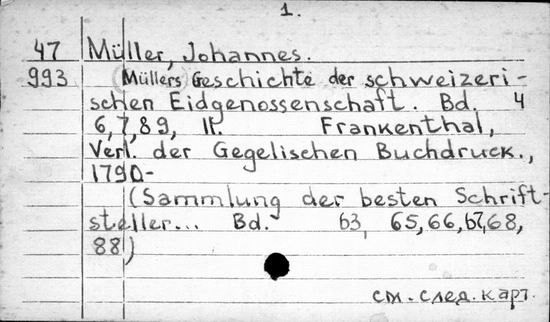 1.
47 Müller, Johannes.
993 Müllers Geschichte der schweizeri-
schen Eidgenossenschaft. Bd. 4
6,7,89, II. Frankenthal,
Verl. der Gegelischen Buchdruck.,
1790-
(Sammlung der besten Schrift-
steller... Bd. 63, 65,66,67,68,
88)
см. след. карт.